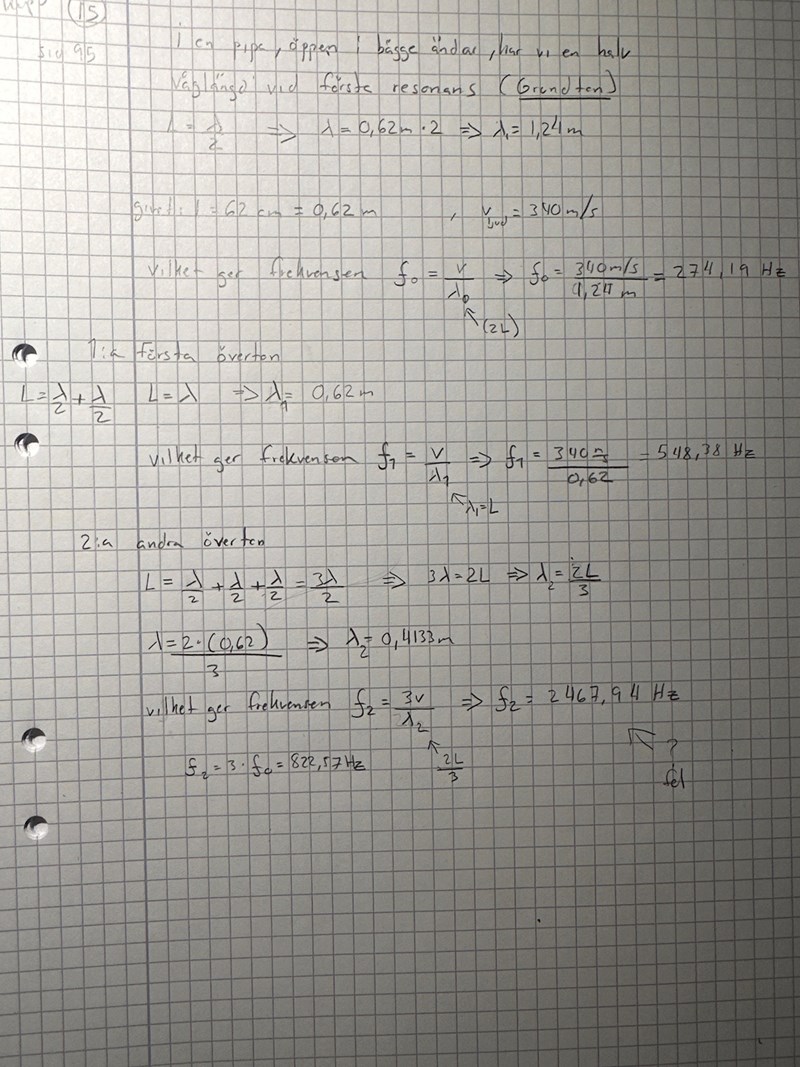 15
sid 95
i en pipa, öppen i bägge ändar, har vi en halv
våglängd vid första resonans (Grundton)
L = λ/2 ⇒ λ = 0,62m · 2 ⇒ λ₁ = 1,24 m
givet: l = 62 cm = 0,62 m , v ljud = 340 m/s
vilket ger frekvensen f₀ = v/λ₀ ⇒ f₀ = 340 m/s / 1,24 m = 274,19 Hz
(2L)
1:a första överton
L = λ/2 + λ/2 L = λ ⇒ λ₁ = 0,62 m
vilket ger frekvensen f₁ = v/λ₁ ⇒ f₁ = 340 / 0,62 = 548,38 Hz
λ₁ = L
2:a andra överton
L = λ/2 + λ/2 + λ/2 = 3λ/2 ⇒ 3λ = 2L ⇒ λ₂ = 2L/3
λ = 2·(0,62)/3 ⇒ λ₂ = 0,4133 m
vilket ger frekvensen f₂ = 3v/λ₂ ⇒ f₂ = 2467,94 Hz
f₂ = 3 · f₀ = 822,57 Hz 2L/3 ?
fel